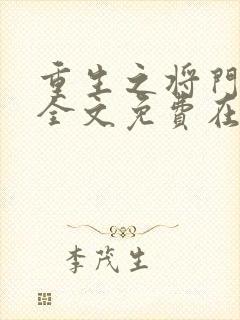 重生之将門
全文免費在
李茂生